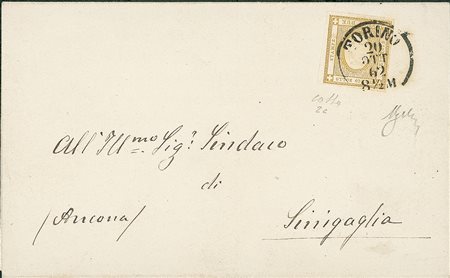 TORINO
20
OTT
62
8½M
All'Ill.mo Sig.r Sindaco
di
(Ancona) Sinigaglia